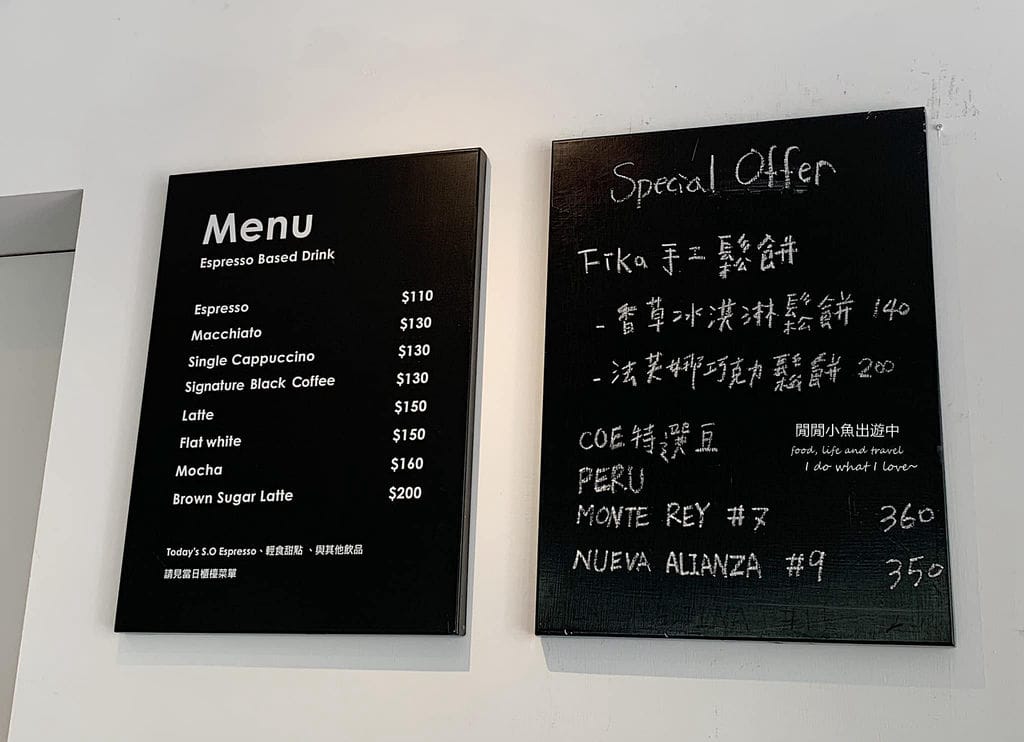 Menu
Espresso Based Drink
Espresso $110
Macchiato $130
Single Cappuccino $130
Signature Black Coffee $130
Latte $150
Flat white $150
Mocha $160
Brown Sugar Latte $200
Today's S.O Espresso、輕食甜點、與其他飲品
請見當日櫃檯菜單
Special Offer
Fika 手工鬆餅
- 香草冰淇淋鬆餅 140
- 法芙娜巧克力鬆餅 200
COE特選豆
PERU
MONTE REY #7 360
NUEVA ALIANZA #9 350
閒閒小魚出遊中
food, life and travel
I do what I love~